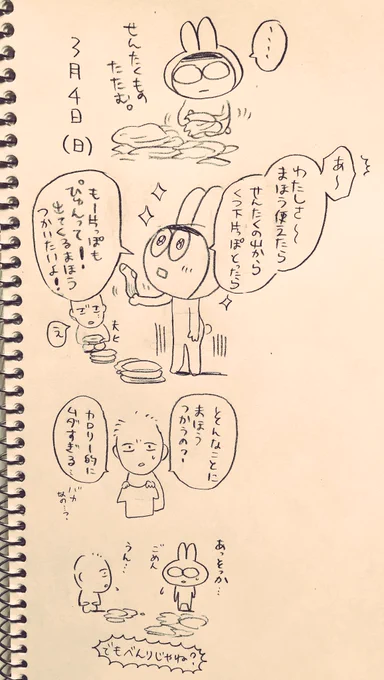 3月4日(日)
せんたくもの
たたむ。
・・・
あ〜
わたしさ〜〜
まほう使えたら
せんたくの山から
くつ下片っぽとったら
もー片っぽも
ぴゅんって!
出てくるまほう
つかいたいよ!
え
夫ヒ
そんなことに
まほう
つかうの?
カロリー的に
ムダすぎる…
バカ
なの…?
あっそっか…
ごめん
うん…
でもべんりじゃね?